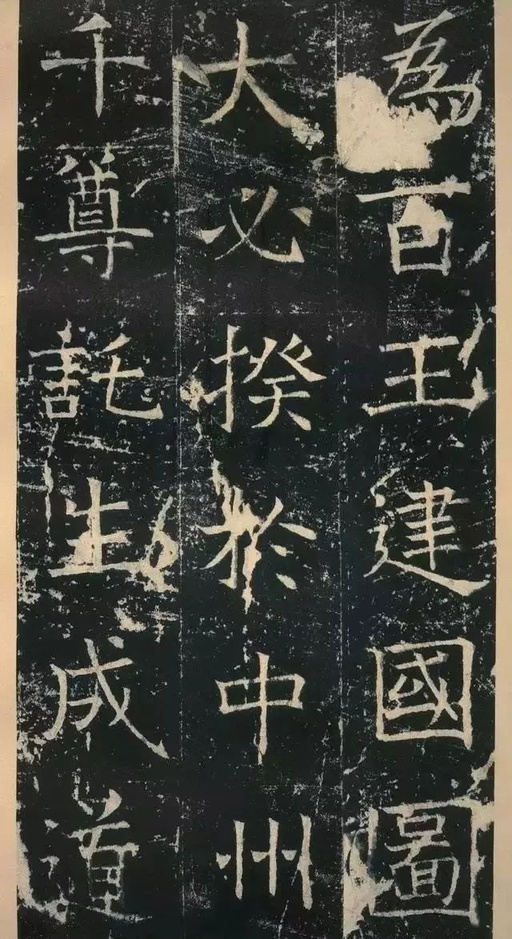 為百王建國圖
大必揆於中州
千尊託生成道